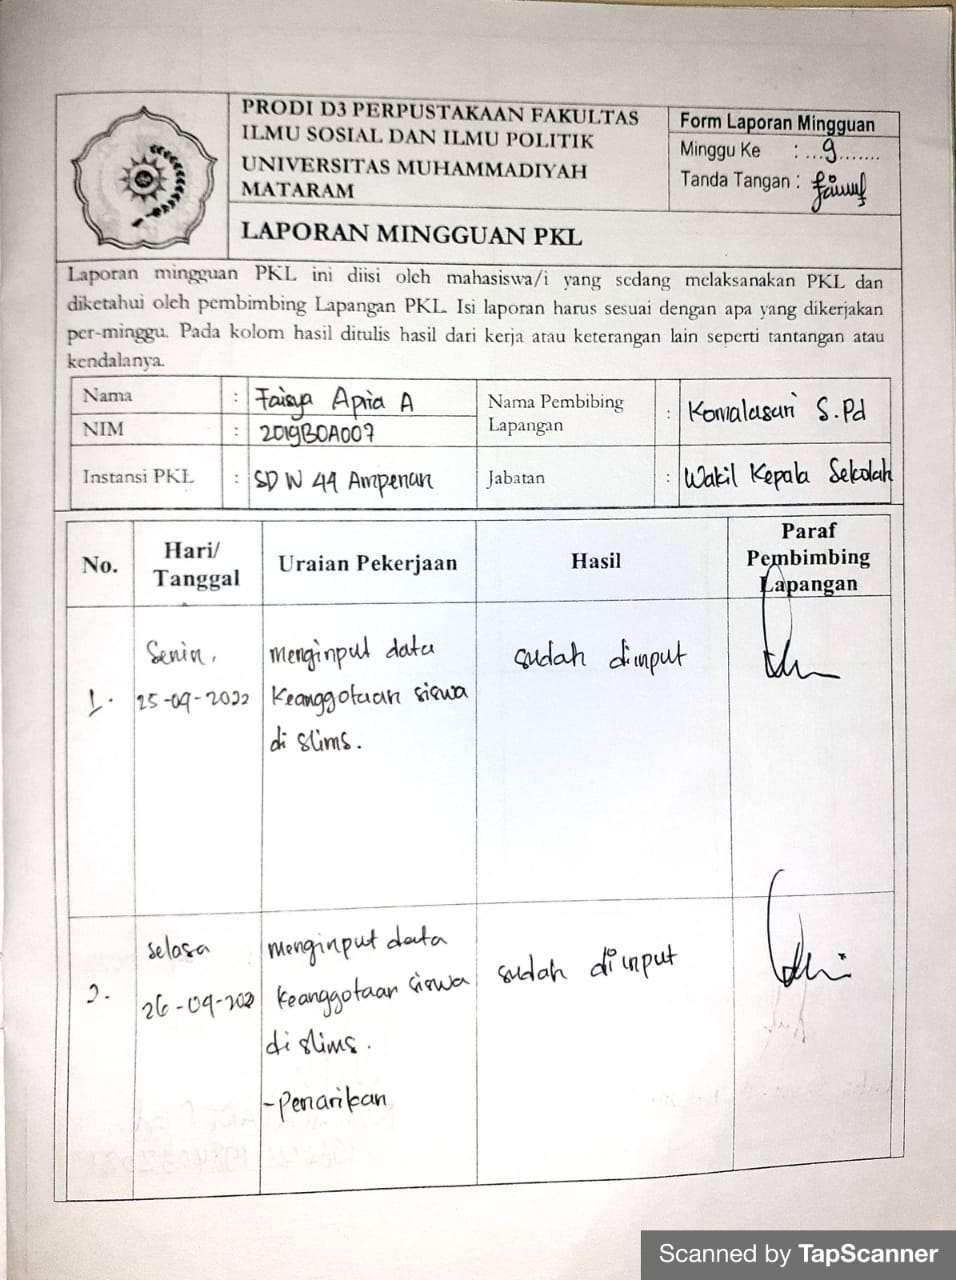 PRODI D3 PERPUSTAKAAN FAKULTAS
ILMU SOSIAL DAN ILMU POLITIK
UNIVERSITAS MUHAMMADIYAH
MATARAM
LAPORAN MINGGUAN PKL
Form Laporan Mingguan
Minggu Ke : ...9.......
Tanda Tangan :
Laporan mingguan PKL ini diisi oleh mahasiswa/i yang sedang melaksanakan PKL dan
diketahui oleh pembimbing Lapangan PKL. Isi laporan harus sesuai dengan apa yang dikerjakan
per-minggu. Pada kolom hasil ditulis hasil dari kerja atau keterangan lain seperti tantangan atau
kendalanya.
Nama : Faisya Apria A
NIM : 2019B0A007
Instansi PKL : SD N 44 Ampenan
Nama Pembibing
Lapangan : Komalasari S.Pd
Jabatan : Wakil Kepala Sekolah
No.
Hari/
Tanggal
Uraian Pekerjaan
Hasil
Paraf
Pembimbing
Lapangan
1.
Senin,
25-09-2022
menginput data
Keanggotaan siswa
di slims.
sudah diinput
2.
selasa
26-09-202
menginput data
keanggotaan siswa
di slims.
-penarikan
sudah diinput
Scanned by TapScanner